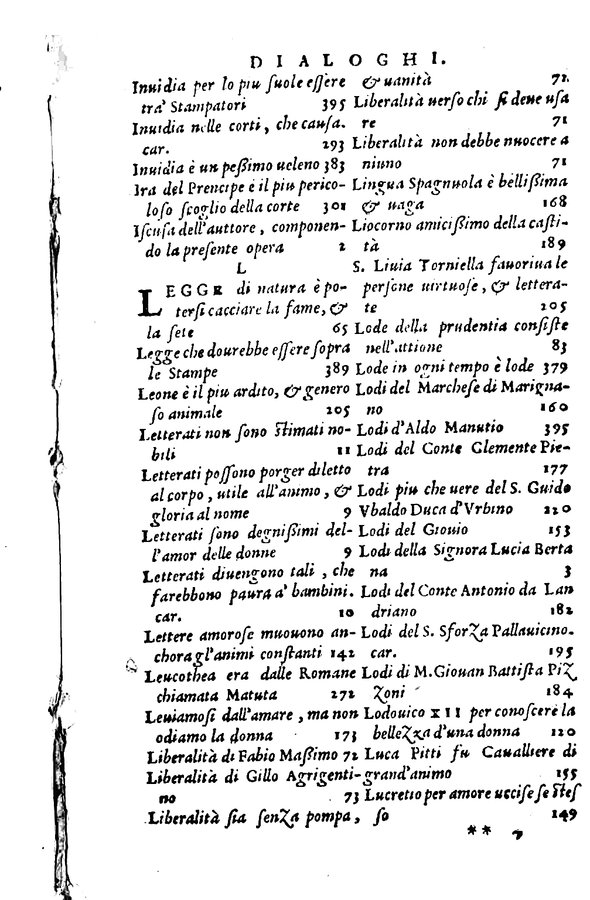 DIALOGHI.
Inuidia per lo piu suole essere
tra' Stampatori 395
Inuidia nelle corti, che causa.
car. 293
Inuidia è un pessimo ueleno 383
Ira del Prencipe è il piu perico-
loso scoglio della corte 301
Iscusa dell'auttore, componen-
do la presente opera 2
L
LEGGE di natura è po-
tersi cacciare la fame, &
la sete 65
Legge che dourebbe essere sopra
le Stampe 389
Leone è il piu ardito, & genero
so animale 205
Letterati non sono stimati no-
bili 11
Letterati possono porger diletto
al corpo, utile all'animo, &
gloria al nome 9
Letterati sono degnissimi del-
l'amor delle donne 9
Letterati diuengono tali, che
farebbono paura a' bambini.
car. 10
Lettere amorose muouono an-
chora gl'animi constanti 142
Leucothea era dalle Romane
chiamata Matuta 272
Leuiamosi dall'amare, ma non
odiamo la donna 173
Liberalità di Fabio Massimo 72
Liberalità di Gillo Agrigenti-
no 73
Liberalità sia senza pompa,
& uanità 71
Liberalità uerso chi si deue usa
re 71
Liberalità non debbe nuocere a
niuno 71
Lingua Spagnuola è bellissima
& uaga 168
Liocorno amicissimo della casti-
tà 189
S. Liuia Torniella fauoriua le
persone uirtuose, & lettera-
te 205
Lode della prudentia consiste
nell'attione 83
Lode in ogni tempo è lode 379
Lodi del Marchese di Marigna-
no 160
Lodi d'Aldo Manutio 395
Lodi del Conte Clemente Pie-
tra 177
Lodi piu che uere del S. Guido
Vbaldo Duca d'Vrbino 220
Lodi del Giouio 153
Lodi della Signora Lucia Berta
na 3
Lodi del Conte Antonio da Lan
driano 182
Lodi del S. Sforza Pallauicino.
car. 195
Lodi di M. Giouan Battista Piz
zoni 184
Lodouico XII per conoscere la
bellezza d'una donna 120
Luca Pitti fu Caualliere di
grand'animo 155
Lucretio per amore uccise se stes
so 149
** ,